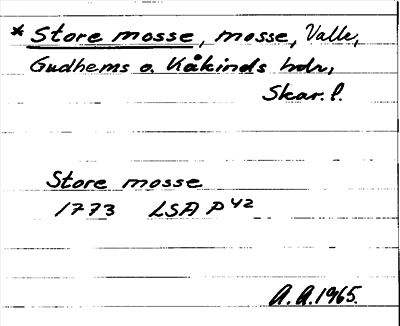 * Store mosse, mosse, Valle,
Gudhems o. Kåkinds hdr,
Skar. l.
Store mosse
1773 LSA P 42
A. A. 1965.